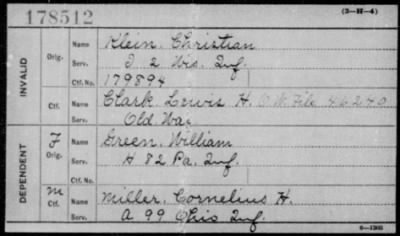 178512 (3—H—4)
INVALID Orig. Name Klein, Christian
Serv. I 2 Wis. Inf.
Ctf. No. 179894
Ctf. Name Clark Lewis H. O.W. File 46240
Serv. Old War
DEPENDENT F Orig. Name Green, William
Serv. H 82 Pa. Inf.
Ctf. No.
M Ctf. Name Miller, Cornelius H.
Serv. A 99 Ohio Inf.
6—1305